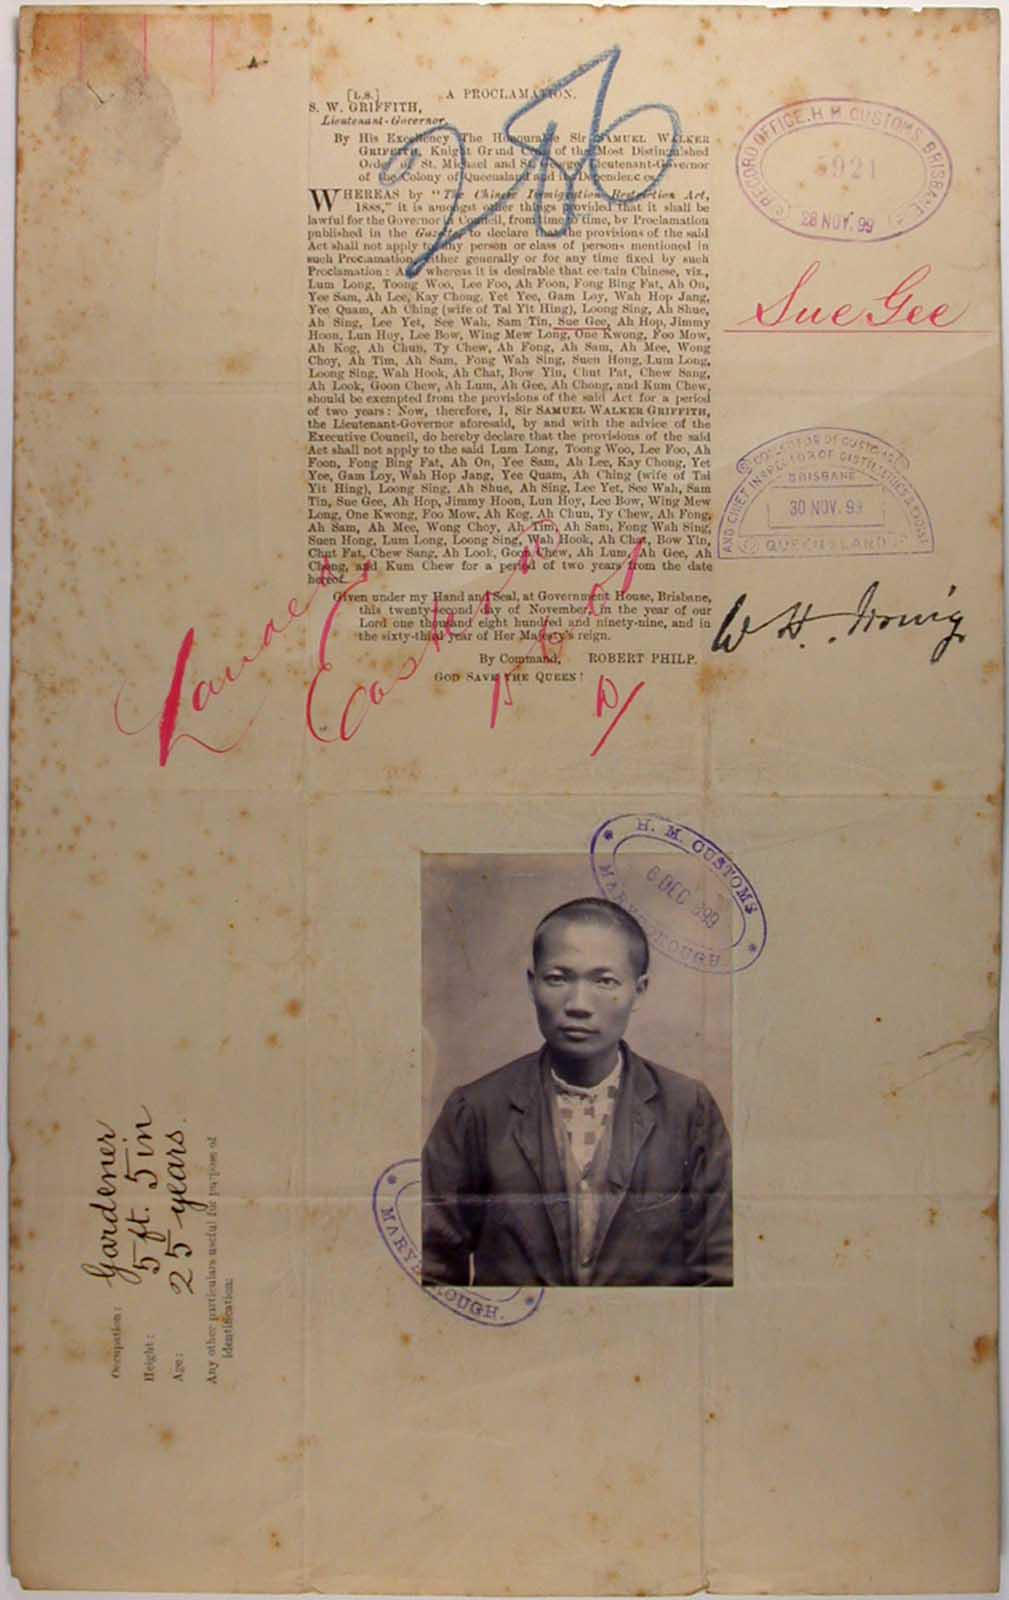 [L.S.] A PROCLAMATION.
S. W. GRIFFITH,
Lieutenant-Governor.
By His Excellency The Honourable Sir SAMUEL WALKER
GRIFFITH, Knight Grand Cross of the Most Distinguished
Order of St. Michael and St. George, Lieutenant-Governor
of the Colony of Queensland and its Dependencies.
WHEREAS by "The Chinese Immigration Restriction Act,
1888," it is amongst other things provided that it shall be
lawful for the Governor in Council, from time to time, by Proclamation
published in the Gazette to declare that the provisions of the said
Act shall not apply to any person or class of persons mentioned in
such Proclamation either generally or for any time fixed by such
Proclamation: And whereas it is desirable that certain Chinese, viz.,
Lum Long, Toong Woo, Lee Foo, Ah Foon, Fong Bing Fat, Ah On,
Yee Sam, Ah Lee, Kay Chong, Yet Yee, Gam Loy, Wah Hop Jang,
Yee Quam, Ah Ching (wife of Tai Yit Hing), Loong Sing, Ah Shue,
Ah Sing, Lee Yet, See Wah, Sam Tin, Sue Gee, Ah Hop, Jimmy
Hoon, Lun Hoy, Lee Bow, Wing Mew Long, One Kwong, Foo Mow,
Ah Kog, Ah Chun, Ty Chew, Ah Fong, Ah Sam, Ah Mee, Wong
Choy, Ah Tim, Ah Sam, Fong Wah Sing, Suen Hong, Lum Long,
Loong Sing, Wah Hook, Ah Chat, Bow Yin, Chut Pat, Chew Sang,
Ah Look, Goon Chew, Ah Lum, Ah Gee, Ah Chong, and Kum Chew,
should be exempted from the provisions of the said Act for a period
of two years: Now, therefore, I, Sir SAMUEL WALKER GRIFFITH,
the Lieutenant-Governor aforesaid, by and with the advice of the
Executive Council, do hereby declare that the provisions of the said
Act shall not apply to the said Lum Long, Toong Woo, Lee Foo, Ah
Foon, Fong Bing Fat, Ah On, Yee Sam, Ah Lee, Kay Chong, Yet
Yee, Gam Loy, Wah Hop Jang, Yee Quam, Ah Ching (wife of Tai
Yit Hing), Loong Sing, Ah Shue, Ah Sing, Lee Yet, See Wah, Sam
Tin, Sue Gee, Ah Hop, Jimmy Hoon, Lun Hoy, Lee Bow, Wing Mew
Long, One Kwong, Foo Mow, Ah Kog, Ah Chun, Ty Chew, Ah Fong,
Ah Sam, Ah Mee, Wong Choy, Ah Tim, Ah Sam, Fong Wah Sing,
Suen Hong, Lum Long, Loong Sing, Wah Hook, Ah Chat, Bow Yin,
Chut Fat, Chew Sang, Ah Look, Goon Chew, Ah Lum, Ah Gee, Ah
Chong, and Kum Chew for a period of two years from the date
hereof.
Given under my Hand and Seal, at Government House, Brisbane,
this twenty-second day of November, in the year of our
Lord one thousand eight hundred and ninety-nine, and in
the sixty-third year of Her Majesty's reign.
By Command, ROBERT PHILP.
GOD SAVE THE QUEEN!
RECORD OFFICE. H. M. CUSTOMS. BRISBANE
5921
28 NOV. 99
Sue Gee
COLLECTOR OF CUSTOMS
AND CHIEF INSPECTOR OF DISTILLERIES
BRISBANE
30 NOV. 99
QUEENSLAND
W H. Irving
H. M. CUSTOMS
6 DEC 1899
MARYBOROUGH
MARYBOROUGH.
Occupation: Gardener
Height: 5 ft. 5 in
Age: 25 years.
Any other particulars useful for purpose of
identification: